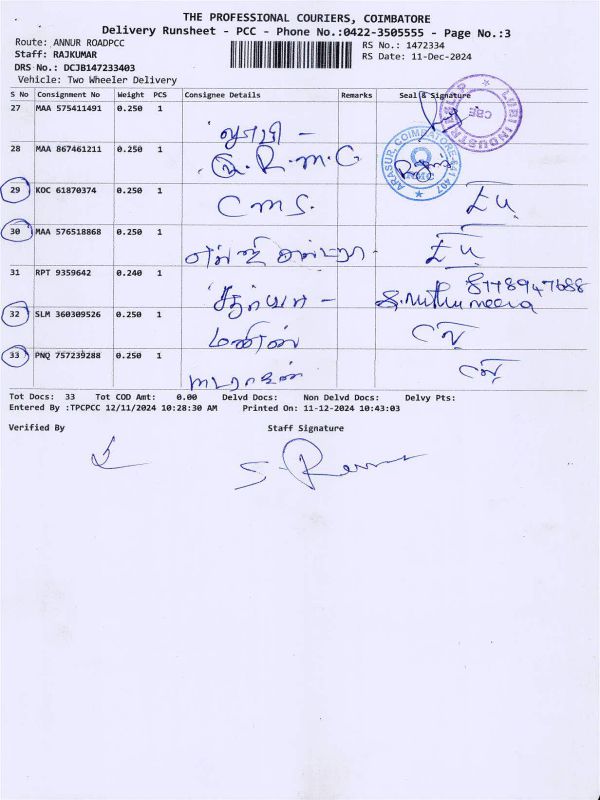 THE PROFESSIONAL COURIERS, COIMBATORE
Delivery Runsheet - PCC - Phone No.:0422-3505555 - Page No.:3
Route: ANNUR ROADPCC
Staff: RAJKUMAR
DRS No.: DCJB147233403
Vehicle: Two Wheeler Delivery
RS No.: 1472334
RS Date: 11-Dec-2024
S No Consignment No Weight PCS Consignee Details Remarks Seal & Signature
27 MAA 575411491 0.250 1
LUBI INDUSTRIES LLP CBE
28 MAA 867461211 0.250 1
R.M.C
ARASUR, COIMBATORE-641 407
RMC
29 KOC 61870374 0.250 1
CMS.
30 MAA 576518868 0.250 1
31 RPT 9359642 0.240 1
சத்யா -
8778947688
32 SLM 360309526 0.250 1
33 PNQ 757239288 0.250 1
Tot Docs: 33 Tot COD Amt: 0.00 Delvd Docs: Non Delvd Docs: Delvy Pts:
Entered By :TPCPCC 12/11/2024 10:28:30 AM Printed On: 11-12-2024 10:43:03
Verified By Staff Signature